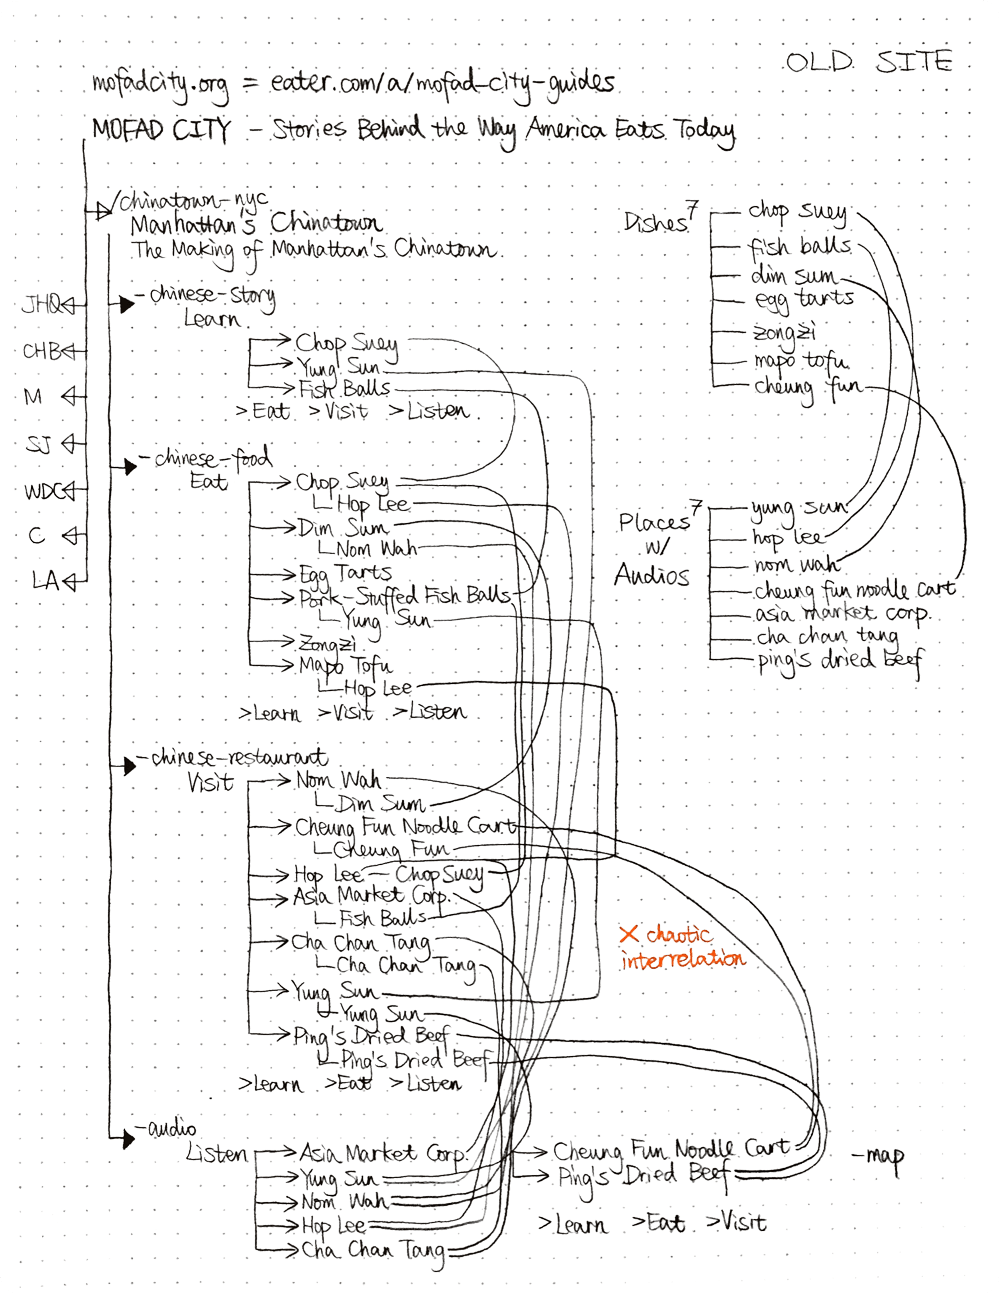 OLD SITE
mofadcity.org = eater.com/a/mofad-city-guides
MOFAD CITY - Stories Behind the Way America Eats Today
/chinatown-nyc
Manhattan's Chinatown
The Making of Manhattan's Chinatown
JHQ
CHB
M
SJ
WDC
C
LA
-chinese-story
Learn
Chop Suey
Yung Sun
Fish Balls
>Eat >Visit >Listen
-chinese-food
Eat
Chop Suey
Hop Lee
Dim Sum
Nom Wah
Egg Tarts
Pork-Stuffed Fish Balls
Yung Sun
Zongzi
Mapo Tofu
Hop Lee
>Learn >Visit >Listen
-chinese-restaurant
Visit
Nom Wah
Dim Sum
Cheung Fun Noodle Cart
Cheung Fun
Hop Lee — Chop Suey
Asia Market Corp.
Fish Balls
Cha Chan Tang
Cha Chan Tang
Yung Sun
Yung Sun
Ping's Dried Beef
Ping's Dried Beef
>Learn >Eat >Listen
-audio
Listen
Asia Market Corp.
Yung Sun
Nom Wah
Hop Lee
Cha Chan Tang
Cheung Fun Noodle Cart
Ping's Dried Beef
>Learn >Eat >Visit
-map
Dishes 7
chop suey
fish balls
dim sum
egg tarts
zongzi
mapo tofu
cheung fun
Places 7
w/
Audios
yung sun
hop lee
nom wah
cheung fun noodle cart
asia market corp.
cha chan tang
ping's dried beef
X chaotic
interrelation